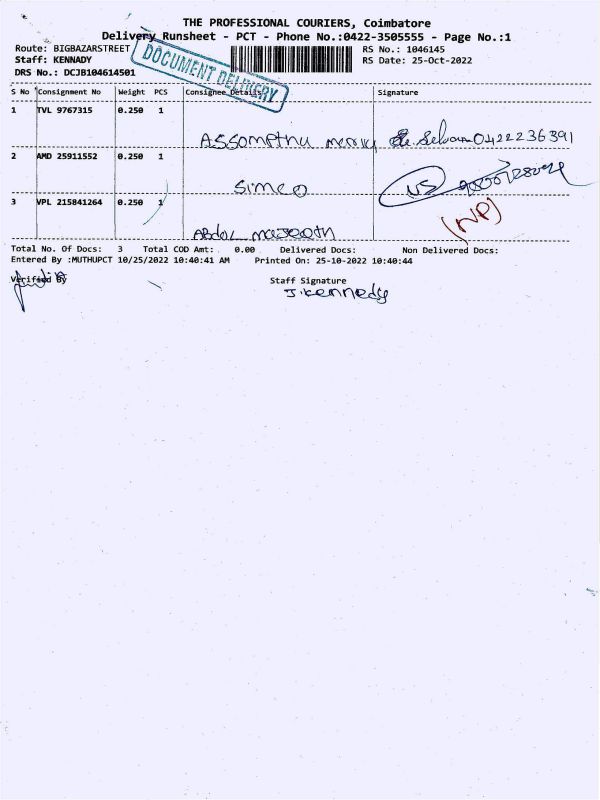 THE PROFESSIONAL COURIERS, Coimbatore
Delivery Runsheet - PCT - Phone No.:0422-3505555 - Page No.:1
Route: BIGBAZARSTREET
RS No.: 1046145
Staff: KENNADY
RS Date: 25-Oct-2022
DRS No.: DCJB104614501
DOCUMENT DELIVERY
S No Consignment No Weight PCS Consignee Details Signature
1 TVL 9767315 0.250 1
Assompthu merry Selvam 0422236391
2 AMD 25911552 0.250 1
Simeo
3 VPL 215841264 0.250 1
(NP)
Abdul majeeth
Total No. Of Docs: 3 Total COD Amt: 0.00 Delivered Docs: Non Delivered Docs:
Entered By :MUTHUPCT 10/25/2022 10:40:41 AM Printed On: 25-10-2022 10:40:44
Verified By
Staff Signature
J.kennedy